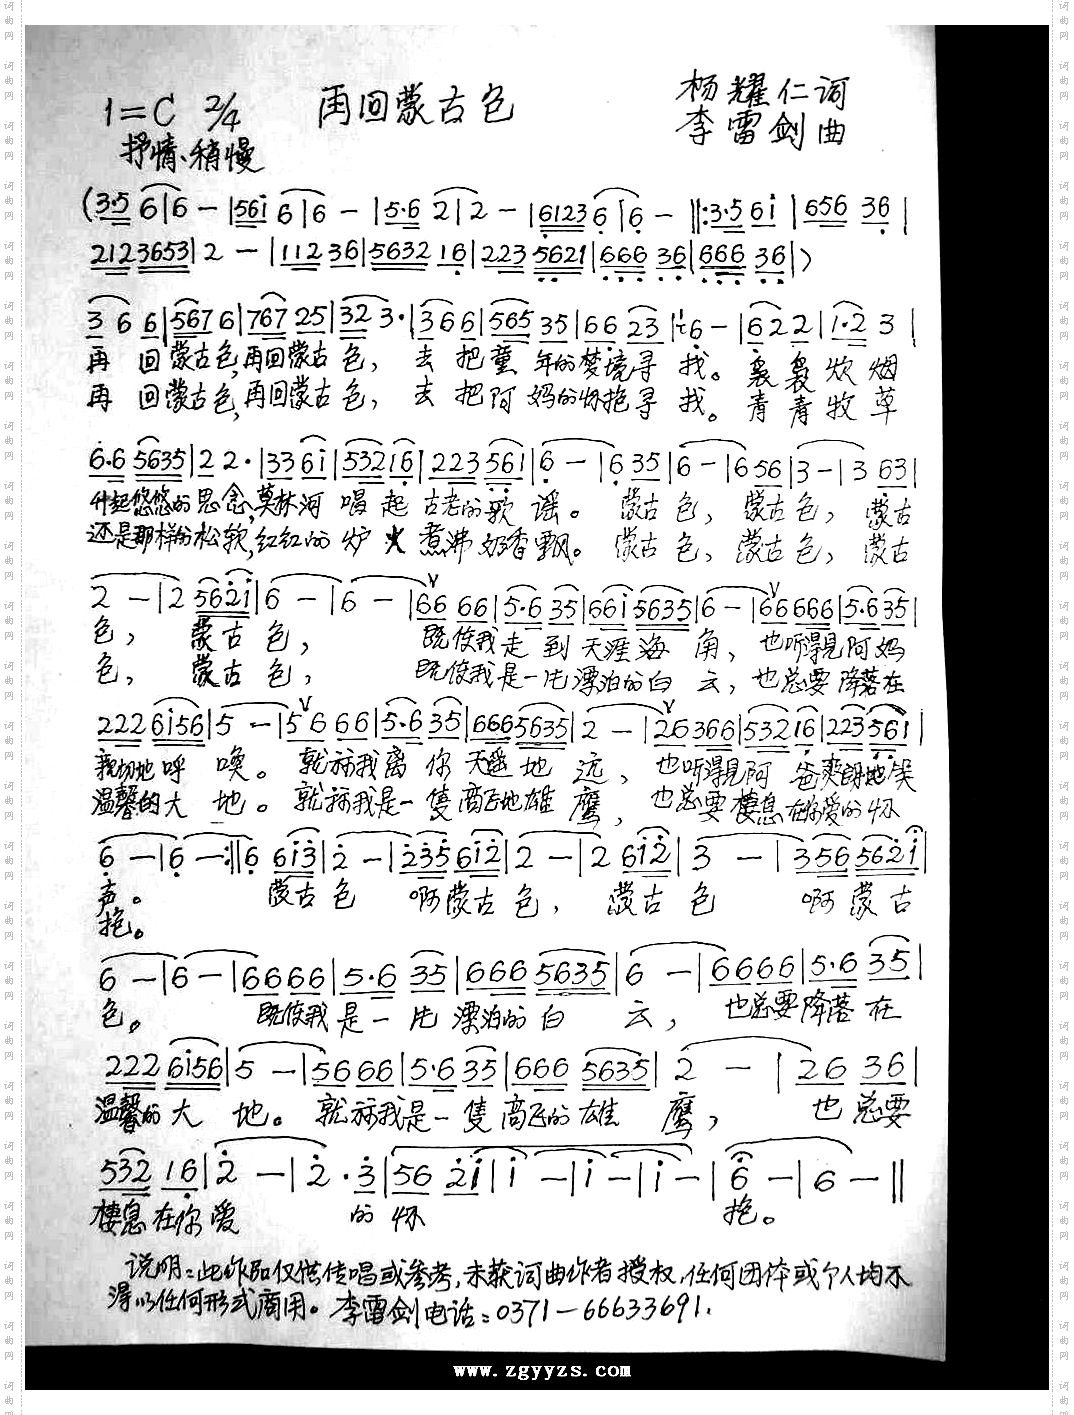 再回蒙古包
1=C 2/4
杨耀仁词
李雷剑曲
抒情、稍慢
(3·5 6|6 - |561 6|6 - |5·6 2|2 - |61236|6 - ‖:3·5 61|656 36|
2123653|2 - |112 36|5632 16|223 5621|666 36|666 36|)
3 6 6|567 6|767 25|32 3·|3 6 6|565 35|66 23|6 - |6 2 2|1·2 3|
再 回蒙古包,再回蒙古包, 去把童年的梦境寻找。袅袅炊烟
再 回蒙古包,再回蒙古包, 去把阿妈的怀抱寻找。青青牧草
6·6 5635|2 2·|33 61|532 16|223 561|6 - |6 35|6 - |6 56|3 - |3 63|
升起悠悠的思念,莫林河唱起古老的歌谣。蒙古包,蒙古包,蒙古
还是那样的松软,红红的炉火煮沸奶香飘。蒙古包,蒙古包,蒙古
2 - |2 5621|6 - |6 - |66 66|5·6 35|661 5635|6 - |66666|5·635|
包, 蒙古包, 既使我走到天涯海角,也听得见阿妈
包, 蒙古包, 既使我是一片漂泊的白云,也总要降落在
222 6156|5 - |56 66|5·6 35|6665635|2 - |26 366|532 16|223 561|
亲切地呼唤。就祘我离你天遥地远,也听得见阿爸爽朗地笑
温馨的大地。就祘我是一隻高飞地雄鹰,也总要棲息在你爱的怀
6 - |6 - :‖6 613|2 - |235 612|2 - |2 612|3 - |356 5621|
声。 蒙古包 啊蒙古包, 蒙古包 啊蒙古
抱。
6 - |6 - |6666|5·6 35|666 5635|6 - |6666|5·6 35|
包。 既使我是一片漂泊的白云,也总要降落在
222 6156|5 - |5666|5·6 35|666 5635|2 - |26 36|
温馨的大地。就祘我是一隻高飞的雄鹰, 也总要
532 16|2 - |2·3|56 21|1 - |1 - |1 - |6 - |6 - ‖
棲息在你爱 的怀 抱。
说明:此作品仅供传唱或参考,未获词曲作者授权,任何团体或个人均不
得以任何形式商用。李雷剑电话:0371-66633691.
www.zgyyzs.com